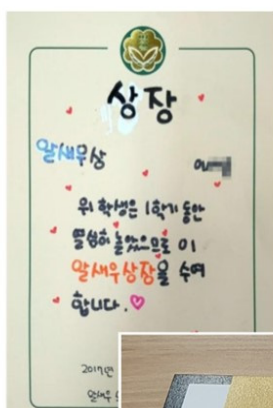 상장
알새우상
위 학생은 1학기 동안
열심히 놀았으므로 이
알새우상장을 수여
합니다.♡
2017년
알새우